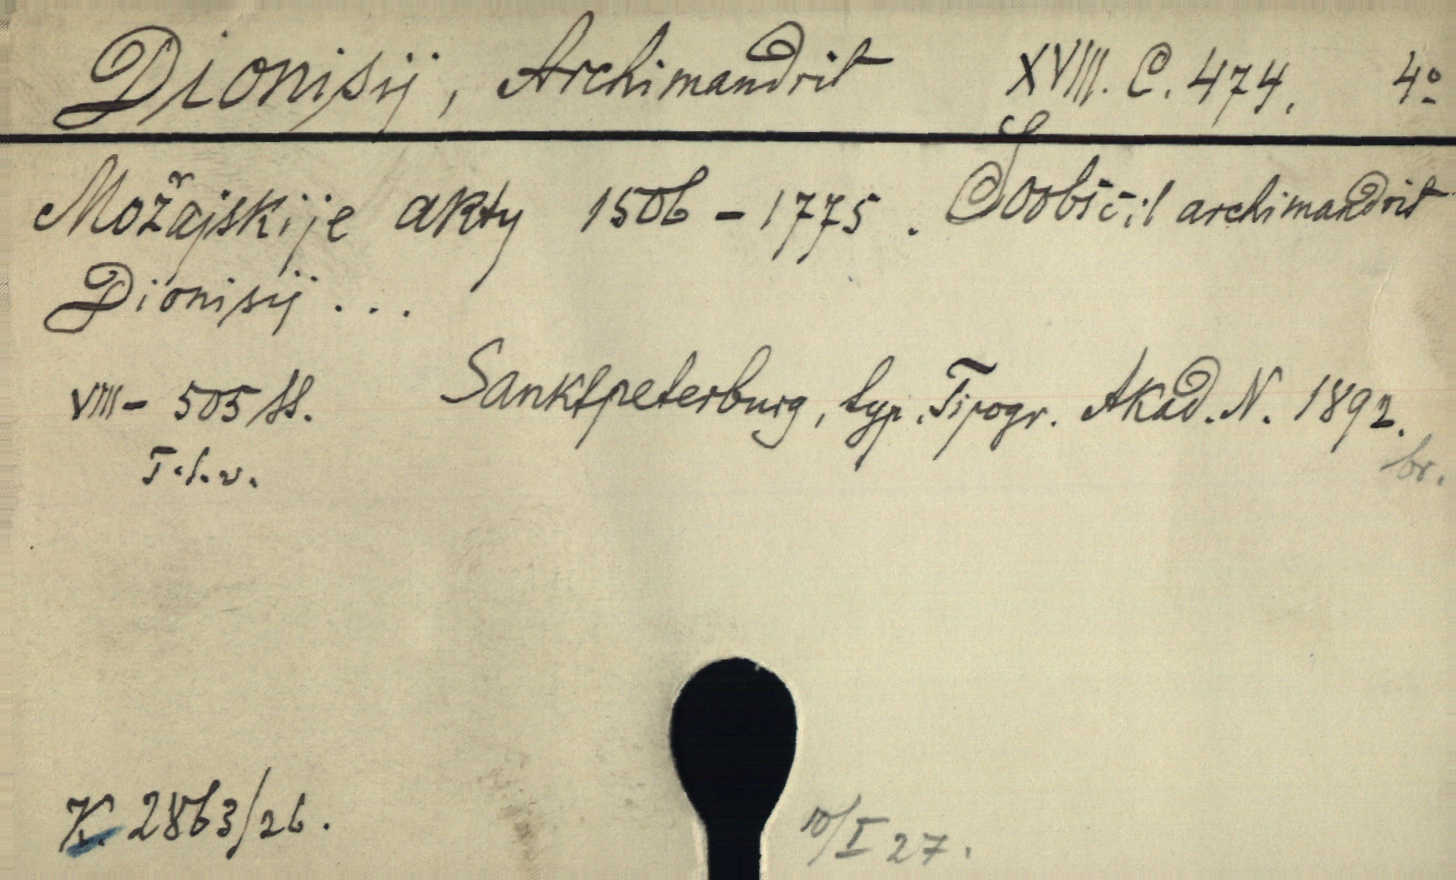 Dionisij, Archimandrit XVIII. C. 474. 4º
Možajskije akty 1506 - 1775. Soobščil archimandrit
Dionisij...
VIII - 505 SS. Sanktpeterburg, typ. Tipogr. Akad. N. 1892.
T. l. v. br.
K. 2863/26. 10/I 27.